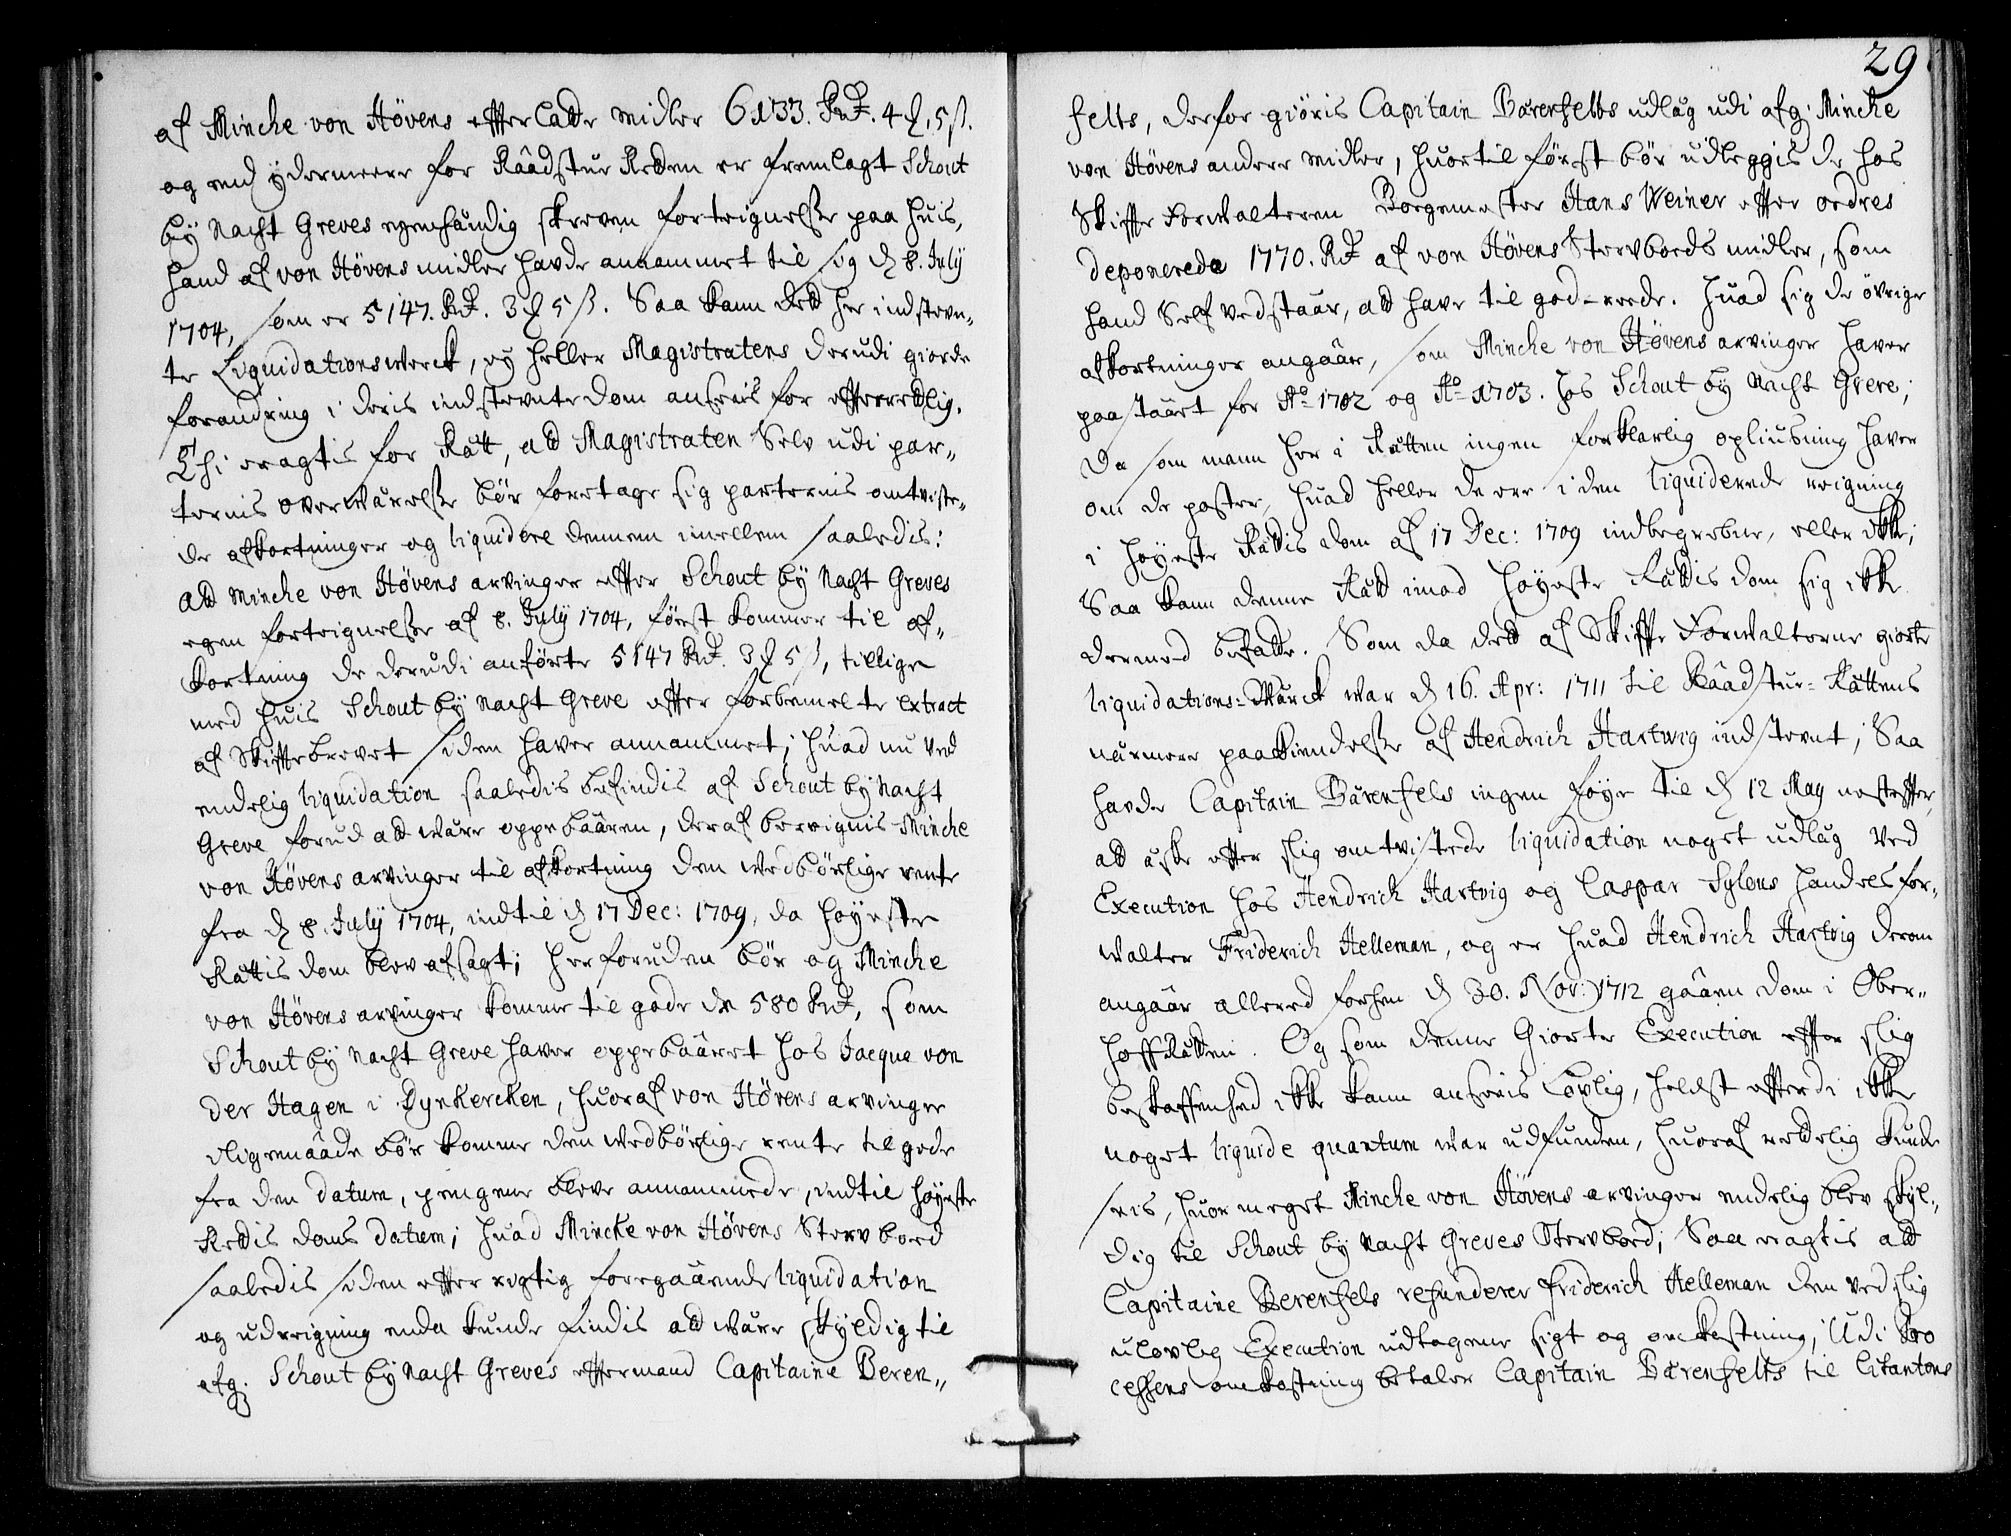 af Minche von Hövens effterladte midler 6133. Rdr. 4 ℔. 5 ß.
og end ydermeere for Raadstue Retten er fremlagt Schout
by Nacht Greves egenhændig skreven fortegnelße paa huis,
hand af von Hövens midler hafde annammet til sig d. 8. July
1704, som er 5147. Rdr. 3 ℔ 5 ß. Saa kand dett her indstevn„
te Liquidationswerck, ey heller Magistratens derudi giorde
forandring i deris indstevnte dom ansees for efterretlig.
Thi eragtis for Rätt, att Magistraten Selv udi par„
ternis overwärelße bör foretage sig parternis omtviste„
de afkortninger og liquidere dennem imellem saaledis:
att Minche von Hövens arvinger effter Schout by Nacht Greves
egen fortegnelße af 8. July 1704, först kommer til af„
kortning de derudi anförte 5147 Rdr. 3 ℔ 5 ß, tillige
med huis Schout by Nacht Greve effter forbemelte extract
af Skifftebrevet siden haver annammet; huad nu ved
endelig liquidation saaledis befindis af Schout by Nacht
Greve forud att være oppebaaren, deraf beregnis Minche
von Hövens arvinger til afkortning den wedbörlige rente
fra d. 8. July 1704, indtil d. 17 Dec: 1709, da höyeste
Rättis dom blev afsagt; herforuden bör og Minche
von Hövens arvinger komme til gode de 580 Rdr, som
Schout by Nacht Greve haver oppebaaret hos Jacque von
der Hagen i Dynkercken, huoraf von Hövens arvinger
ligemaade bör komme den wedbörlige rente til gode
fra den datum, pengene bleve annammede, indtil höyeste
Rettis doms datum; huad Mincke von Hövens Stervboed
saaledis siden effter rigtig foregaaende liquidation
og udregning enda kunde findis att være skyldig til
afg. Schout by Nacht Greves efftermand Capitaine Beren„
29
felts, derfor giöris Capitain Bärenfelts udlæg udi afg. Minche
von Hövens andere midler, huortil först bör udleggis de hos
Skiffte Forwalteren Borgemester Hans Weiner effter ordres
deponerede 1770. Rdr af von Hövens Stervboeds midler, som
hand Self vedstaar, att have til gode rede. Huad sig de övrige
afkortninger angaar, som Minche von Hövens arvinger haver
paastaaet for Ao 1702 og Ao 1703. hos Schout by Nacht Greve;
da som mann her i Rätten ingen forklarlig opliusning haver
om de poster, huad heller de ere i den liquiderede reigning
i höyeste Rättis dom af 17 Dec: 1709 indbegrebne, eller ikke;
Saa kand denne Rätt imod höyeste Rättis dom sig ikke
dermed befatte. Som da dett af Skiffte Forwalterne giorte
liquidations-Wärck war d. 16. Apr: 1711 til Raadstue-Rättens
närmere paakiendelße af Hendrich Hartwig indstevnt; Saa
hafde Capitain Bärenfels ingen föye til d. 12 May nesteffter,
att äske effter slig omtvistede liquidation noget udlæg ved
Execution hos Hendrich Hartvig og Caspar Sylens handels for„
walter Friderich Helleman, og er huad Hendrich Hartvig derom
angaar allereede forhen d. 30. Nov: 1712 gaaen dom i Ober„
hoffRätten. Og som denne Giorte Execution effter slig
beskaffenhed ikke kand ansees lovlig, heldst efterdi ikke
noget liquide quantum war udfunden, huoraf redelig kunde
sees, huor meget Minche von Hövens arvinger endelig blev skyl„
dig til Schout by Nacht Greves Stervboed; Saa eragtis att
Capitaine Berenfels refunderer Friderich Helleman den ved slig
ulovlig Execution udtagene sigt og omkostning; Udi Pro
cessens omkostning betaler Capitain Bärenfelts til Citantens